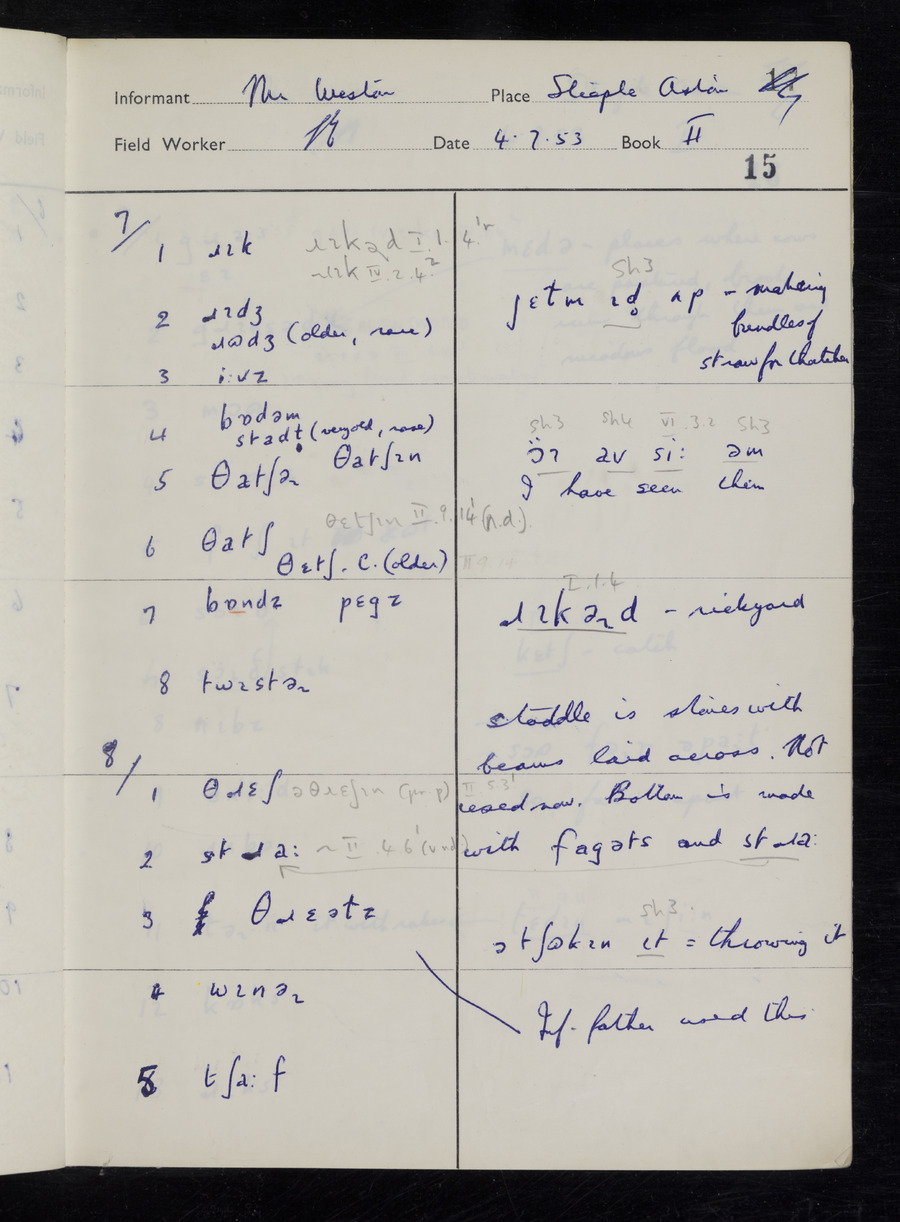 Informant Mr Weston Place Steeple Aston
Field Worker Date 4.7.53 Book II
15
7/ 1 ɹɪk ɹɪkəd I.1.4.
ɹɪk IV.2.4.²
2 ɹɪdʒ
ɹɷdʒ (older, rare)
3 i:vz
4 bɒdəm
stadḷ (very old, rare)
5 θatʃəɪ θatʃɪn
θɛtʃɪn II.9.14¹ (p.d.)
6 θatʃ
θɛtʃ. C. (older)
II 9.14
7 bɒndz pɛgz
8 twɪstəɪ
8/ 1 θɹɛʃ əθɹɛʃɪn (pr.p) II 5.3¹
2 stɹa: ~ II .4.6¹
3 θɹɛətz
4 wɪnəɪ
5 tʃa:f
Sh3
ʌp – making
bundles of
straw for thatcher
Sh3 Sh4 VI.3.2 Sh3
ɔ̈ɪ əv si: əm
I have seen them
I.1.4
ɹɪkəɪd – rickyard
staddle is stones with
beams laid across. Not
used now. Bottom is made
with fagəts and stɹa:
Sh3.
ətʃɷkɪn ɪt = throwing it
Inf. father used this